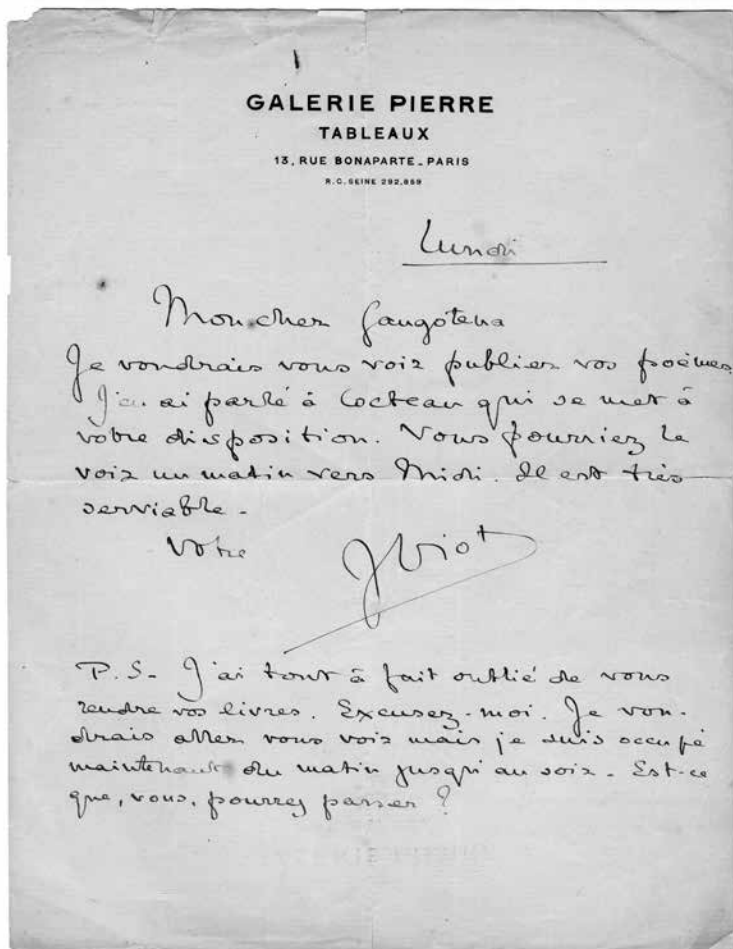 GALERIE PIERRE
TABLEAUX
13, RUE BONAPARTE - PARIS
R.C. SEINE 292,859
Lundi
Mon cher Gangotena
Je voudrais vous voir publier vos poèmes.
J'en ai parlé à Cocteau qui se met à
votre disposition. Vous pourriez le
voir un matin vers Midi. Il est très
serviable -
Votre JViot
P.S- J'ai tout à fait oublié de vous
rendre vos livres. Excusez-moi. Je vou-
drais aller vous voir mais je suis occupé
maintenant du matin jusqu'au soir - Est-ce
que, vous, pourrez passer ?